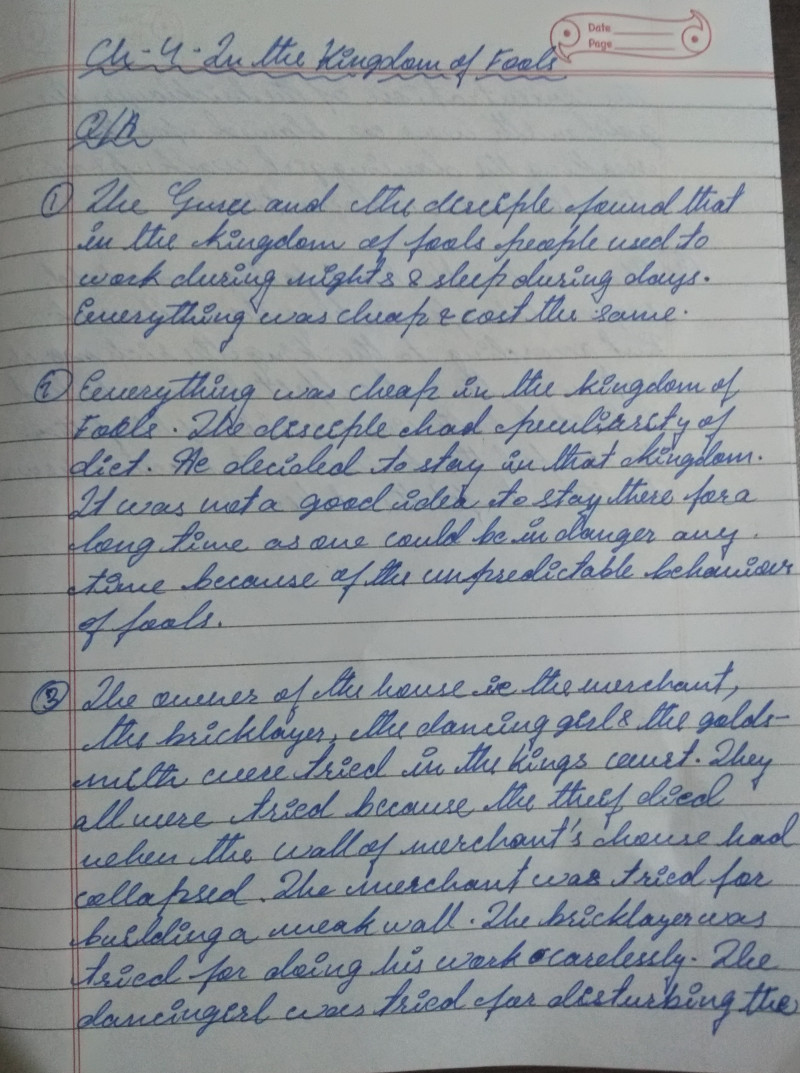 Date
Page
Ch-4-In the Kingdom of Fools
Q/A
① The Guru and the disciple found that
in the kingdom of fools people used to
work during nights & sleep during days.
Eeverything was cheap & cost the same.
② Eeverything was cheap in the kingdom of
Fools. The disciple had peculiarity of
diet. He decided to stay in that kingdom.
It was not a good idea to stay there for a
long time as one could be in danger any.
time because of the unpredictable behaviour
of fools.
③ The owner of the house ie the merchant,
the bricklayer, the dancing girl & the golds-
mith were tried in the kings court. They
all were tried because the theif died
when the wall of merchant's house had
collapsed. The merchant was tried for
building a weak wall. The bricklayer was
tried for doing his work carelessly. The
dancingirl was tried for disturbing the